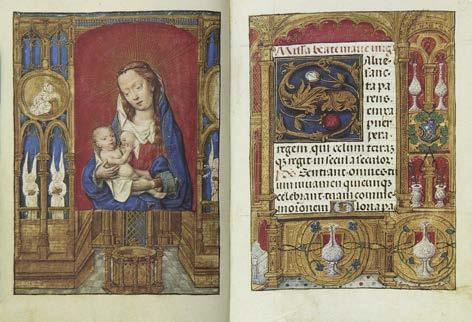 Missa beate marie virg
alve
sancta
parens
enixa
puerpera
regem, qui celum terraz
qz regit in secula seculor
Ps Sentiant omnes tu
um iuuamen quicunqz
celebrant tuam comme
morationem Gloria pa